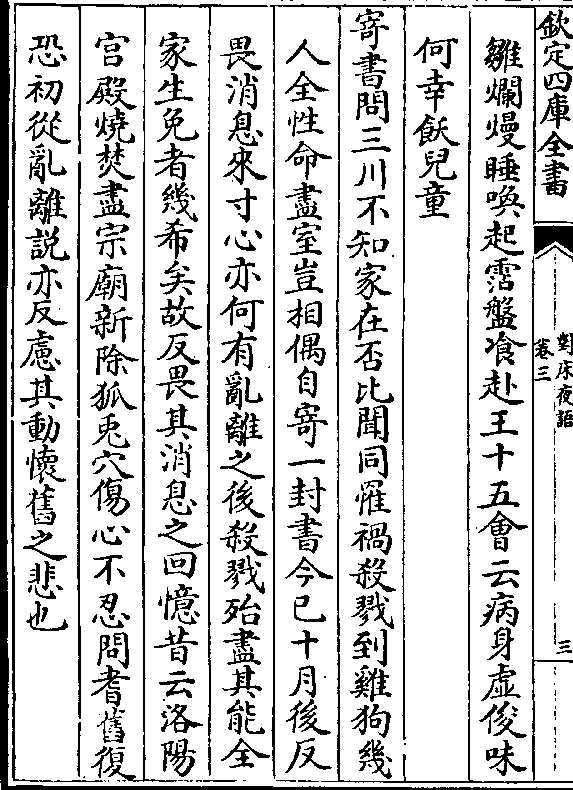 欽定四庫全書
對床夜語
卷三
三
雛爛熳睡喚起霑盤飧赴王十五會云病身虛俊味
何幸飫兒童
寄書問三川不知家在否比聞同罹禍殺戮到雞狗幾
人全性命盡室豈相偶自寄一封書今已十月後反
畏消息來寸心亦何有亂離之後殺戮殆盡其能全
家生免者幾希矣故反畏其消息之回憶昔云洛陽
宫殿燒焚盡宗廟新除狐兎穴傷心不忍問耆舊復
恐初從亂離説亦反慮其動懷舊之悲也